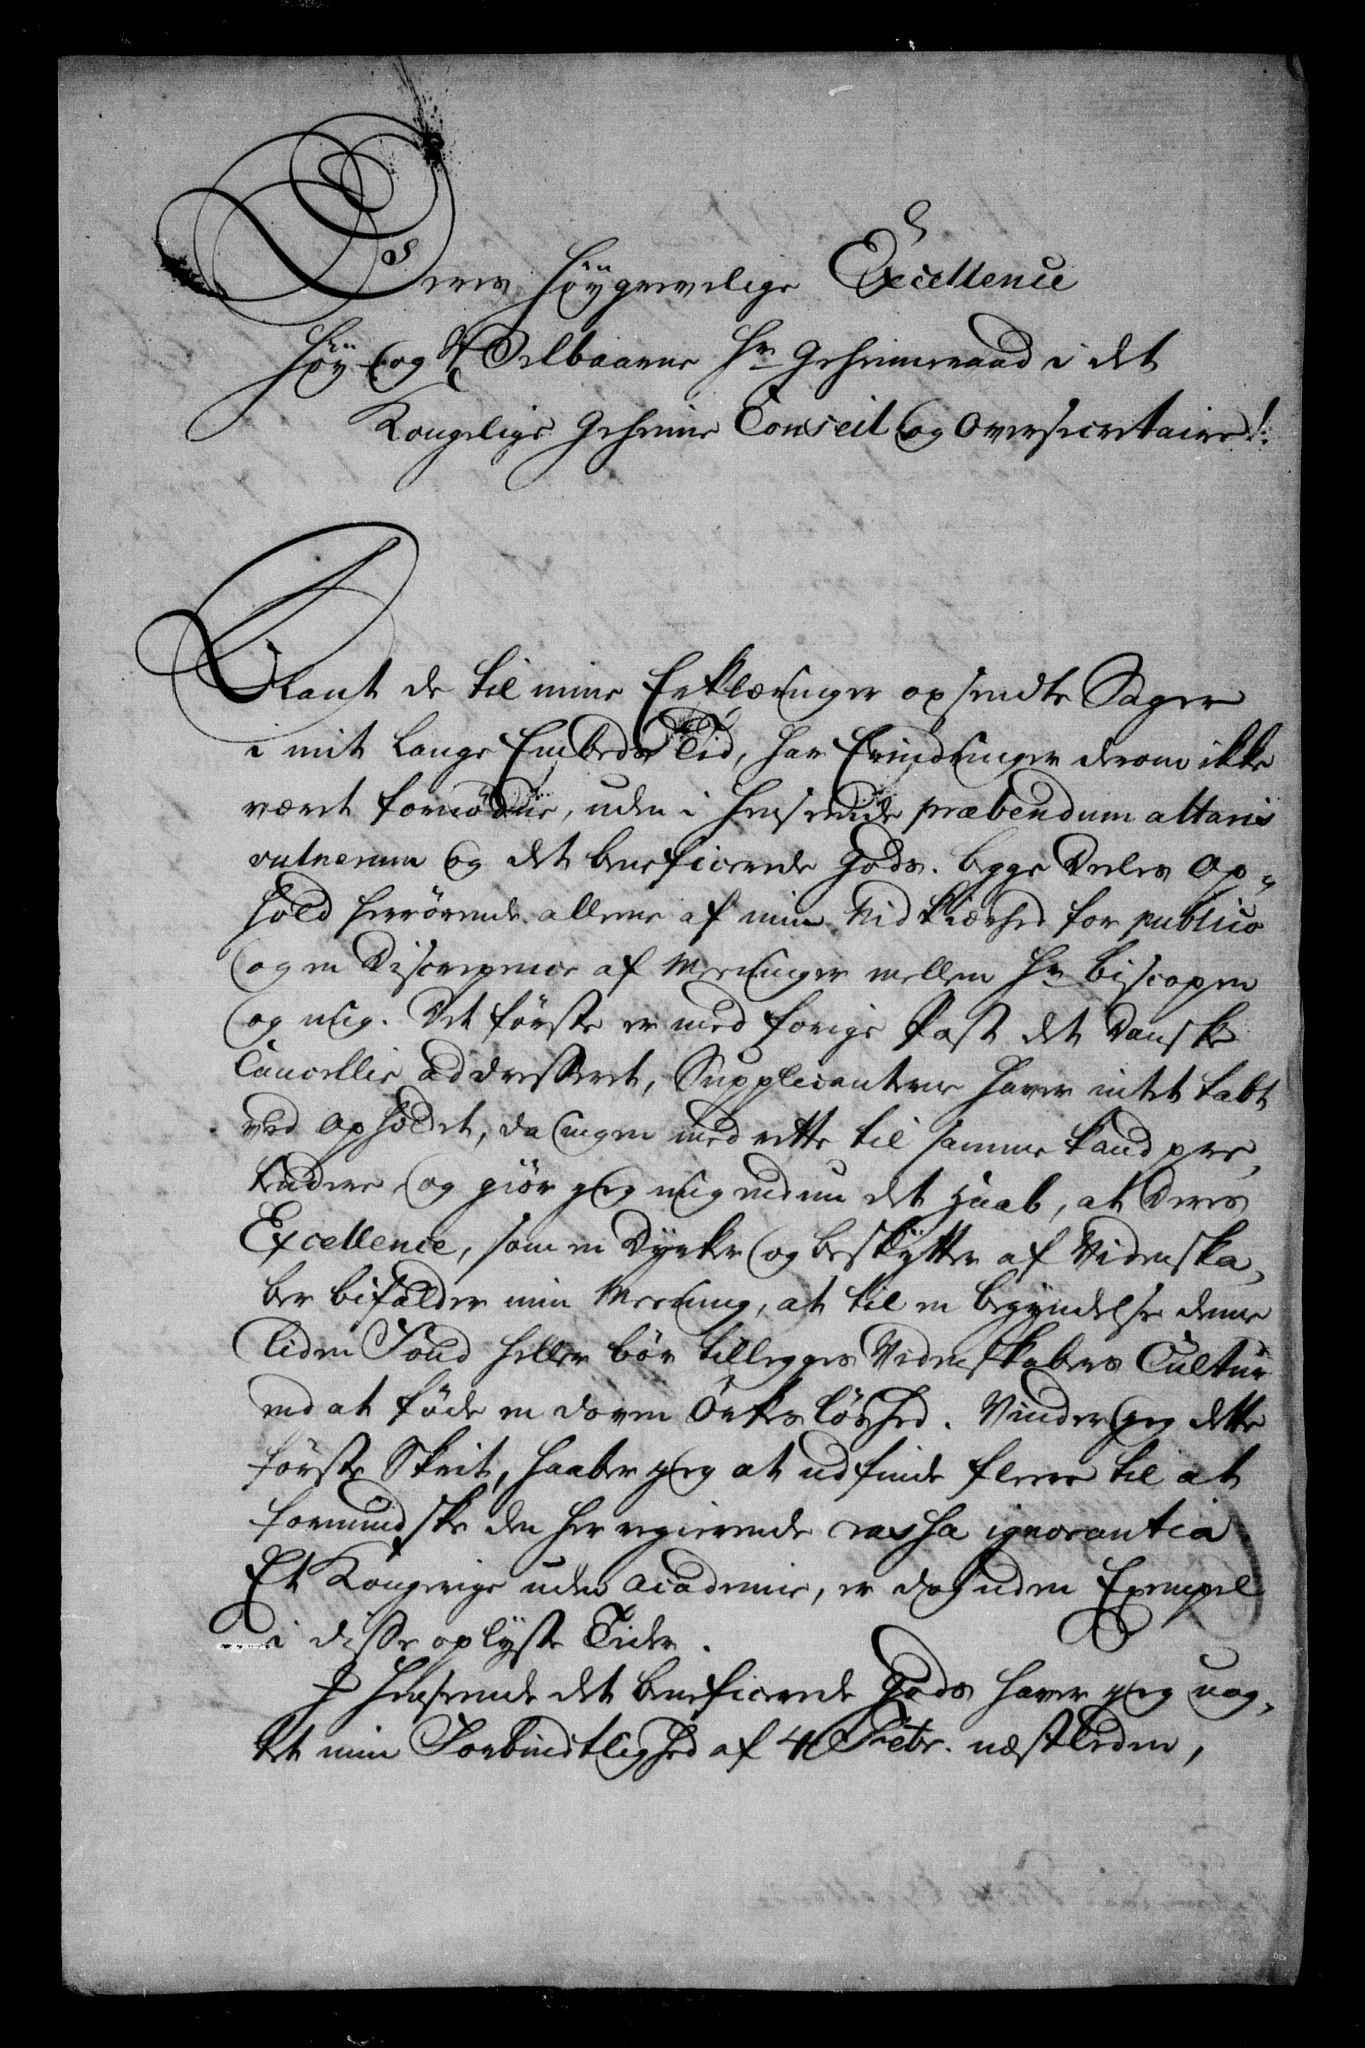 Deres Höygrevelige Excellence
Höy og Velbaarne Hr Geheimeraad i det
Kongelige Geheime Conseil og Oversecretaire!
Blant de til mine Erklæringer opsendte Sager
i mit lange Embeds Tid, har Erindringer derom ikke
været fornödne, uden i henseende præbendum altaris
vulnerum og det beneficerede Gods. begge Deeles Op-
hold herrörende allene af min Nidkiærhed for publico
og en Discrepence af Meeninger mellem Hr Biscopen
og mig. Det förste er med forige Post det Danske
Cancellie addresseret, Supplicanterne haver intet tabt
ved Opholdet, da ingen med rette til samme kand præ-
tendere, og giör jeg mig endnu det Haab, at Deres
Excellence, som en Dyrker og beskytter af Videnska-
ber bifalder min Meening, at til en begyndelse denne
liden Fond heller bör tillegges Videnskabers Cultur
end at föde en doven Örkeslöshed. Vinder jeg dette
förste Skrit, haaber jeg at udfinde fleere til at
formindske den her regierende crassa ignorantia
Et Kongerige uden Academie, er dog uden Exempel
i disse oplyste Tider.
I Henseende det beneficerede Gods haver jeg uag-
tet min Forbindtlighed af 4 Febr. næstleden,